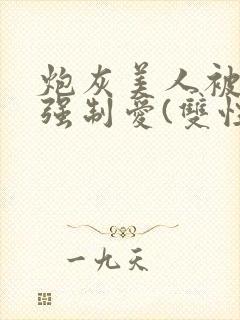 炮灰美人被
强制愛(雙性
一九天